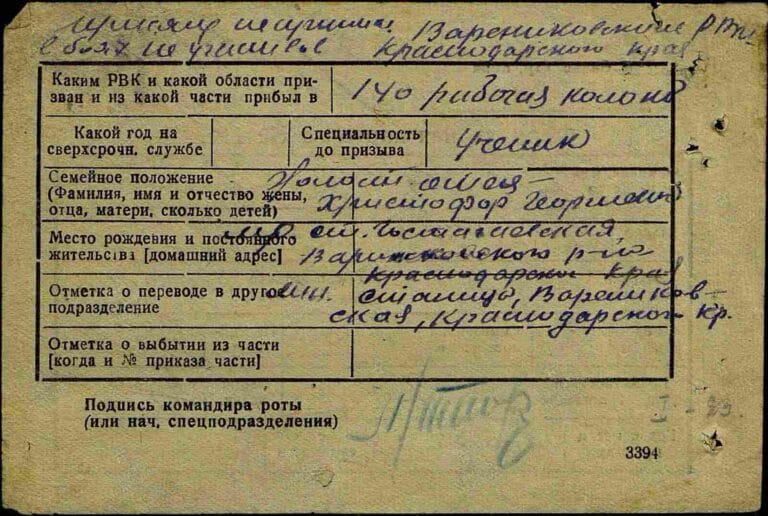 присягу не принимал Варениковским РВК
в боях не участвовал Краснодарского края
Каким РВК и какой области при-
зван и из какой части прибыл в
140 рабочая колона
Какой год на
сверхсрочн. службе
Специальность
до призыва
Ученик
Семейное положение
(Фамилия, имя и отчество жены,
отца, матери, сколько детей)
Холост отец -
Христофор Георгиевич
Место рождения и постоянного
жительства [домашний адрес]
ст. Гостагаевская
Варениковского р-на
Краснодарский край
Отметка о переводе в другое
подразделение
станица, Вареников-
ская, Краснодарского кр.
Отметка о выбытии из части
[когда и № приказа части]
Подпись командира роты
(или нач. спецподразделения)
3394